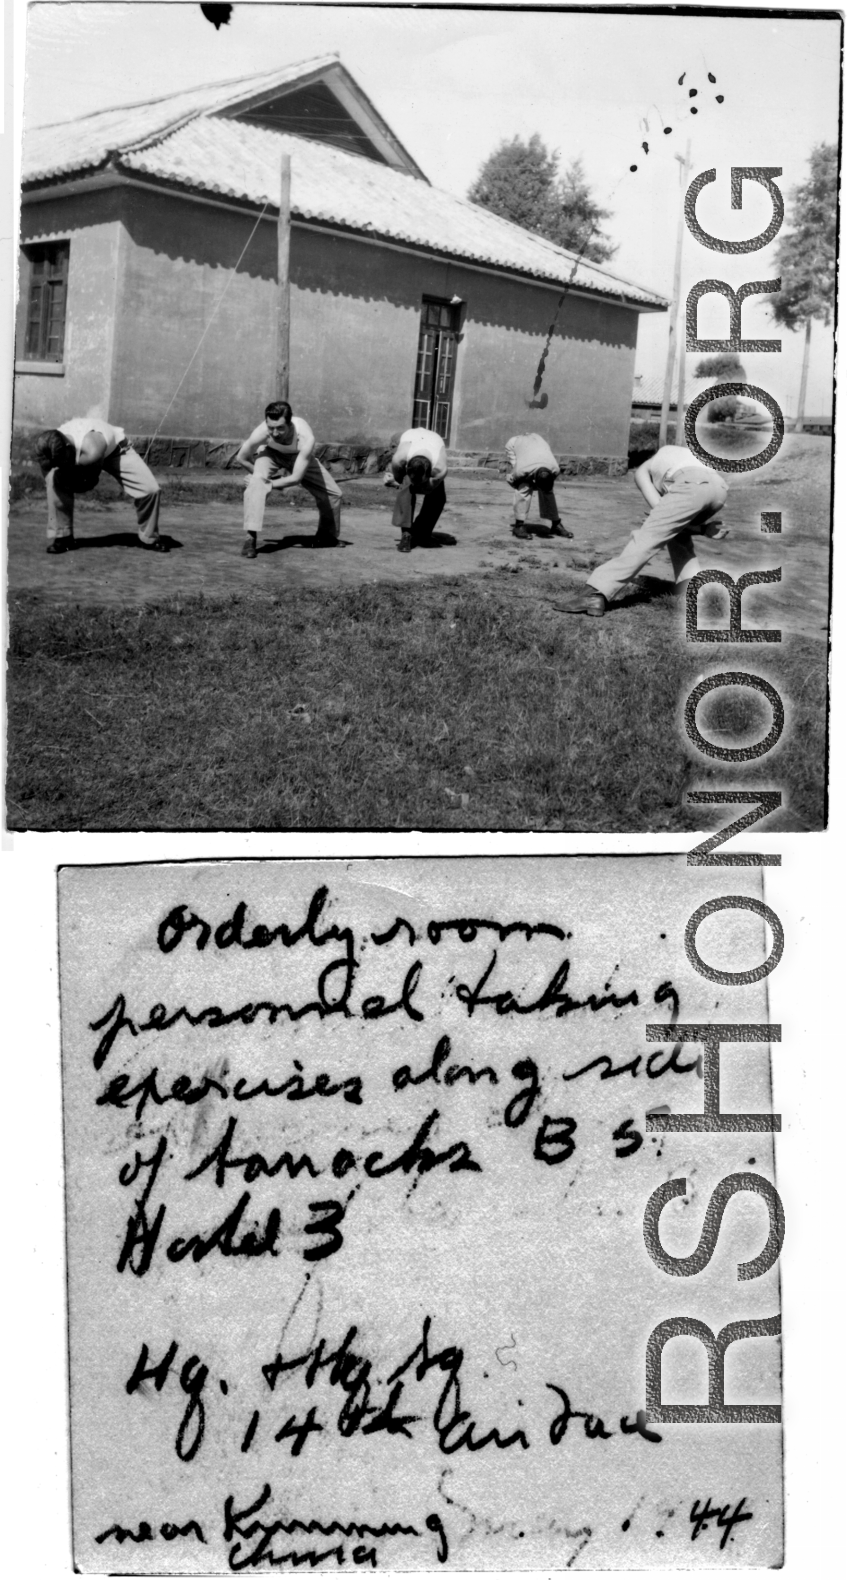 RSHONOR.ORG
Orderly room
personnel taking
exercises along side
of barracks B 5
Hostel 3
Hq. + Hq. Sq.
14th Air Force
near Kunming
China
44